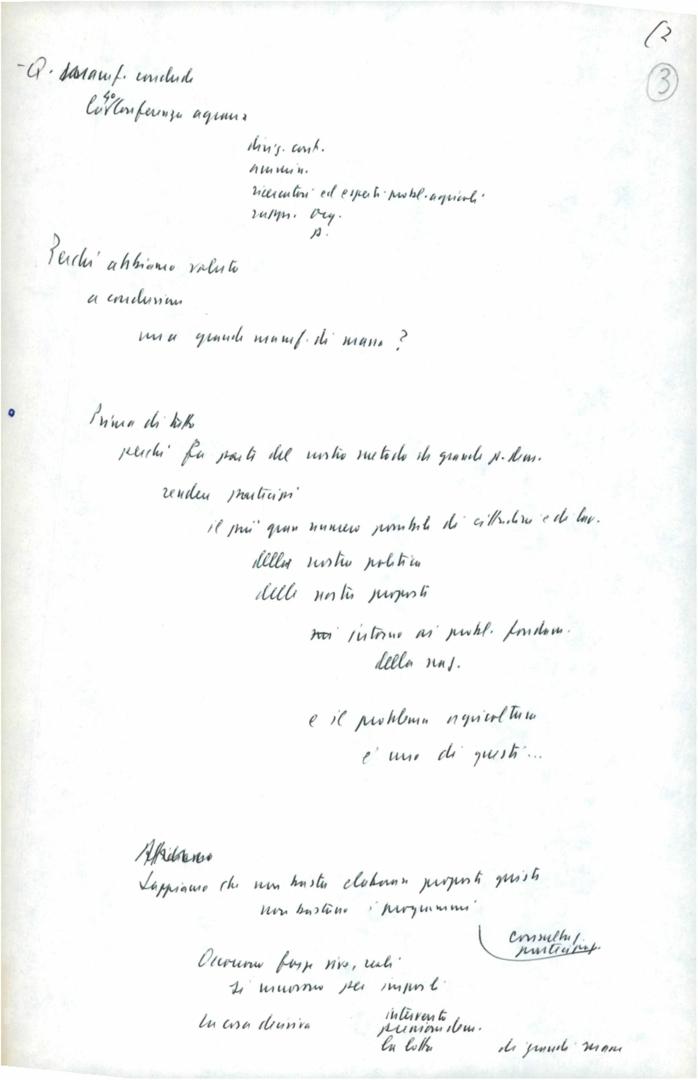 (2
3
- Q. manif. conclude
la 4a Conferenza agraria
dirig. cont.
ammin.
ricercatori ed esperti probl. agricoli
respr. Org.
p.
Perché abbiamo voluto
a conclusione
una grande manif. di massa?
Prima di tutto
perché fa parte del nostro metodo di grande p. dem.
rendere partecipi
il più gran numero possibile di cittadini e di lav.
della nostra politica
delle nostre proposte
intorno ai probl. fondam.
della naz.
e il problema agricoltura
è uno di questi...
Sappiamo che non basta elaborare proposte giuste
non bastano i programmi
consultaz.
particip.
Occorrono forze vive, reali
si muovono per imporli
La cosa decisiva
intervento
pressione dem.
la lotta di grandi masse